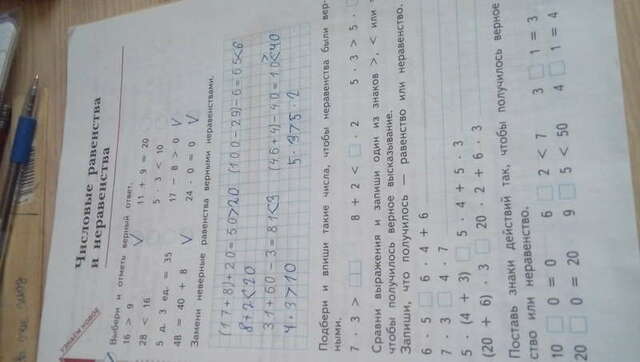 УЗНАЁМ НОВОЕ
Числовые равенства
и неравенства
Выбери и отметь верный ответ.
16 > 9 ✓ 11 + 9 = 20
28 < 16 5 · 3 < 10
5 д. 3 ед. = 35 17 − 8 > 0 ✓
48 = 40 + 8 ✓ 24 · 0 = 0 ✓
Замени неверные равенства верными неравенствами.
(17+8)+20=50>20 (100-29)-6=65<6
8+2<20
31+50-3=81<3 (46+4)-40=10<40
4·3>10 5·3>5·2
Подбери и впиши такие числа, чтобы неравенства были вер-
ными.
7 · 3 > □□ 8 + 2 < □ · 2 5 · 3 > 5 · □
Сравни выражения и запиши один из знаков >, < или
чтобы получилось верное высказывание.
Запиши, что получилось — равенство или неравенство.
6 · 5 □ 6 · 4 + 6
7 · 3 □ 4 · 7
5 · (4 + 3) □ 5 · 4 + 5 · 3
(20 + 6) · 3 □ 20 · 2 + 6 · 3
Поставь знаки действий так, чтобы получилось верное
ство или неравенство.
10 □ 0 = 0 6 □ 2 < 7 3 □ 1 = 3
20 □ 0 = 20 9 □ 5 < 50 4 □ 1 = 4